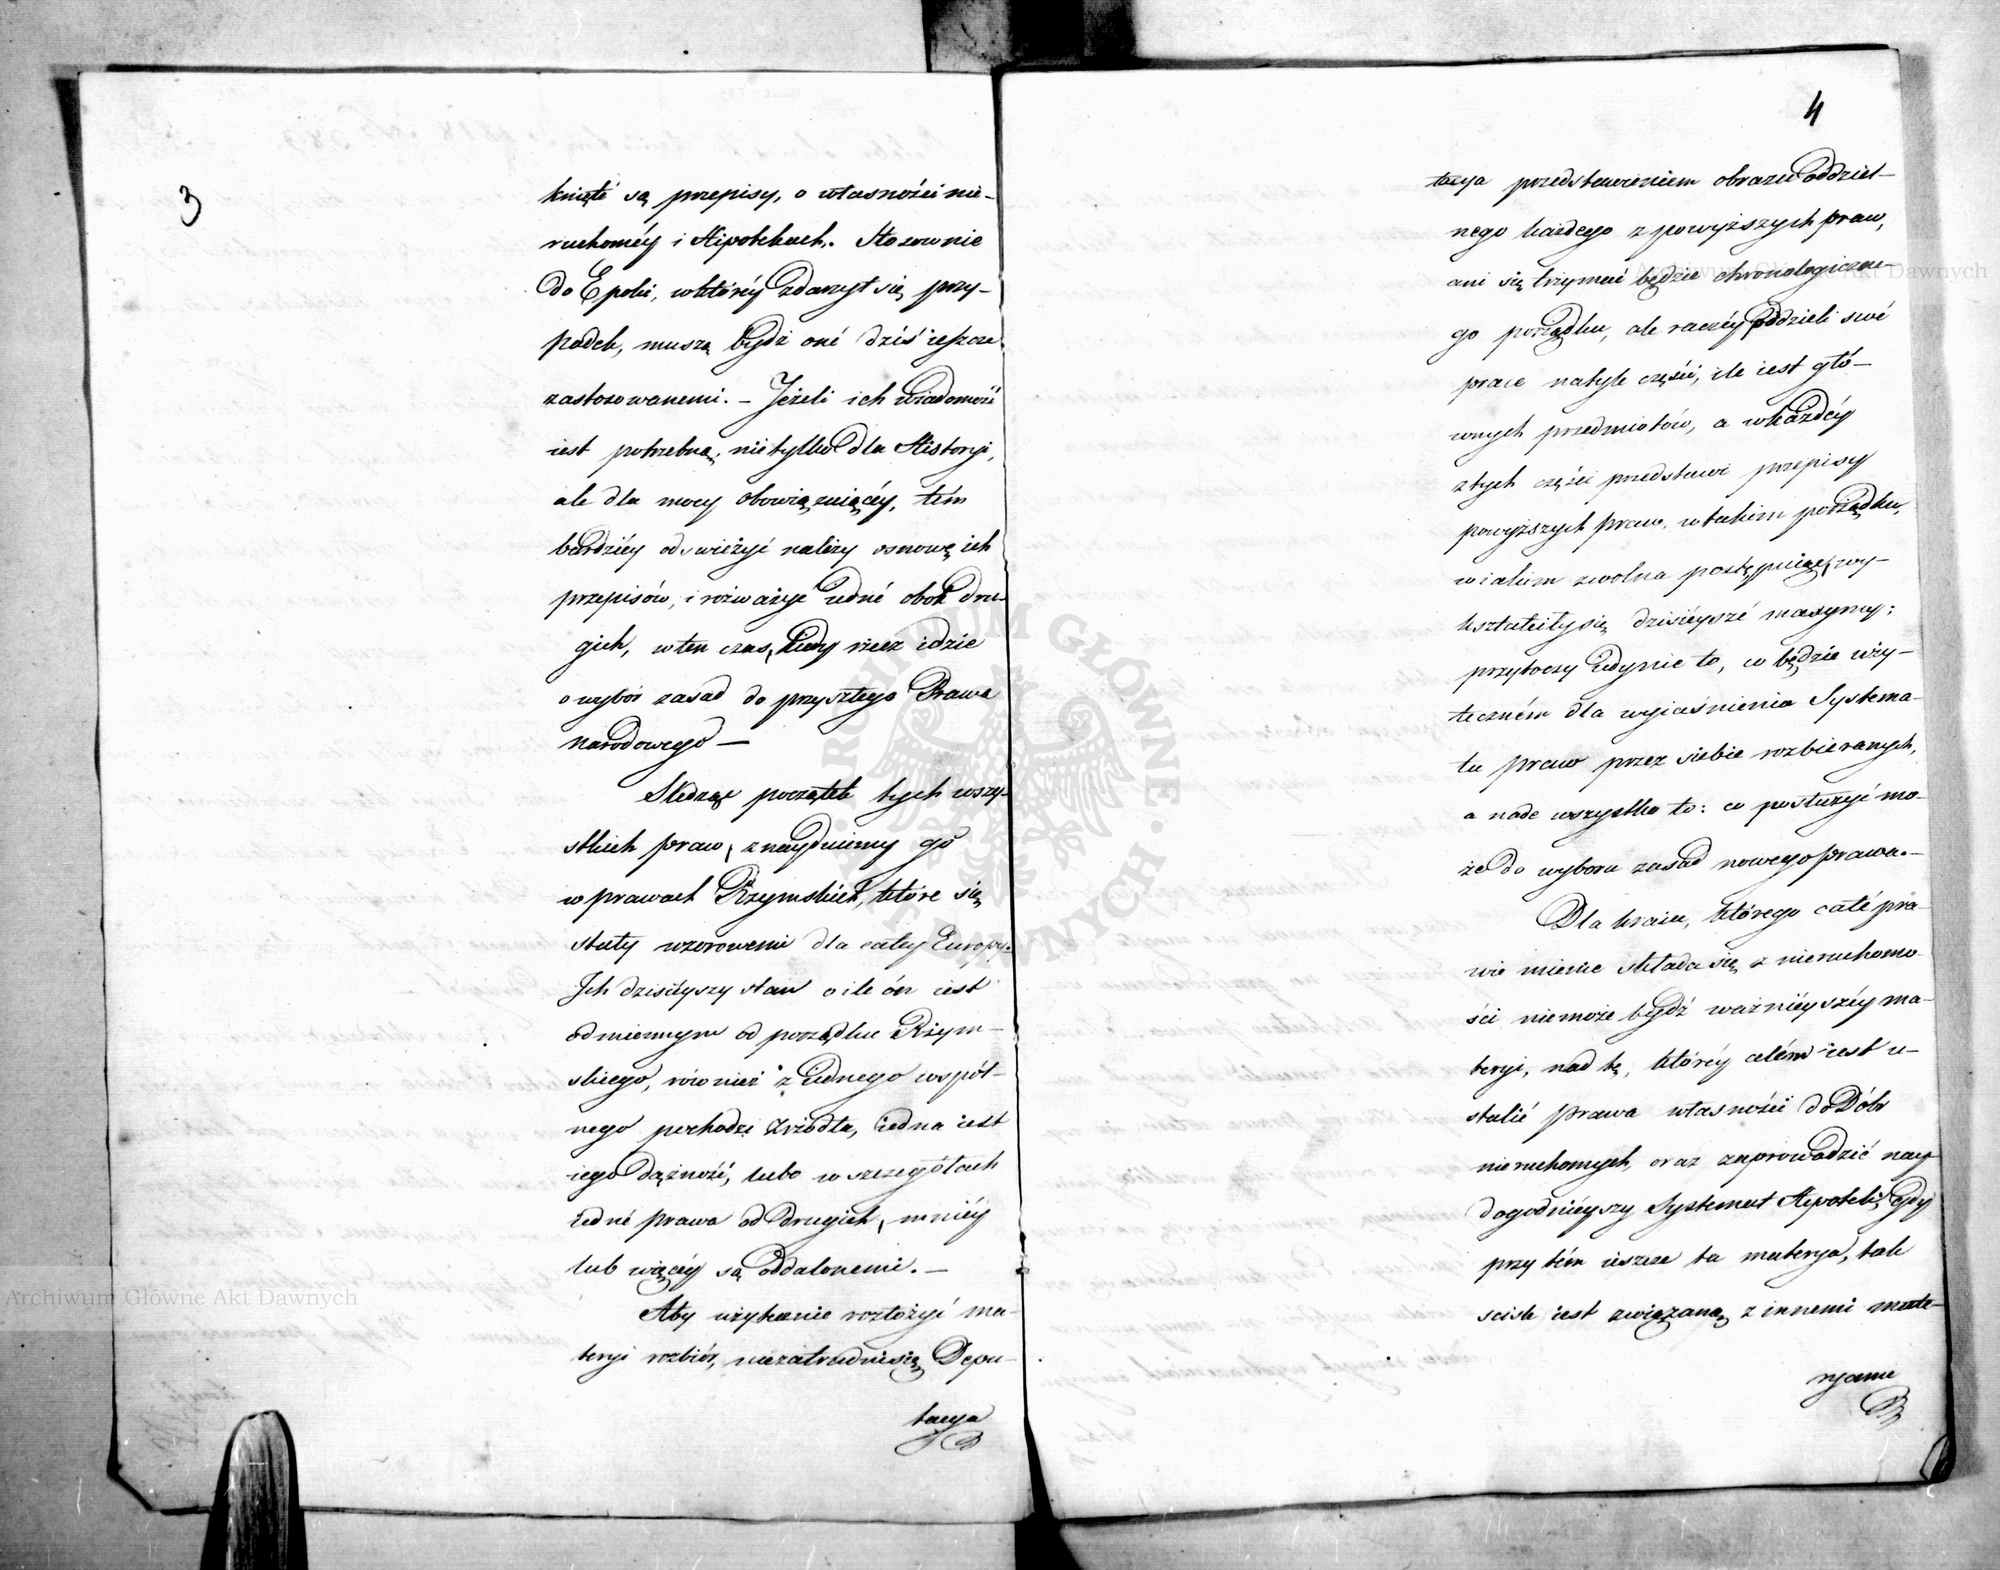 3
knięté są przepisy, o własności nie-
ruchoméy i Hipotekach. Stosownie
do Epoki, w któréy zdarzył się przy-
padek, muszą bydź oné dziś ieszcze
zastosowanemi. – Jeżeli ich wiadomość
iest potrzebną, nietylko dla Historyi,
ale dla mocy obowiązuiącéy, tém
bardziéy odświeżyć należy osnowę ich
przepisów, i rozważyć iedné obok dru-
gich, w ten czas, kiedy rzecz idzie
o wybór zasad do przyszłego Prawa
narodowego –
Sledząc początek tych wszy-
stkich praw, znaydziemy go
w prawach Rzymskich, które się
stały wzorowemi dla całey Europy.
Ich dzisieyszy stan o ile ón iest
odmiennym od porządku Rzym-
skiego, również z iednego wspól-
nego pochodzi zrzódła, iedna iest
iego dążność, lubo w szczegółach
iedné prawa od drugich, mniéy
lub więcéy są oddalonemi. –
Aby użytecznie rozłożyć ma-
teryi rozbiór, niezatrudni się Depu-
tacya
4
tacya przedstawieniem obrazu oddziel-
nego każdego z powyższych praw,
ani się trzymać będzie chronologiczne-
go porządku, ale raczéy oddzieli swé
prace na tyle części, ile iest głó-
wnych przedmiotów, a w każdéy
z tych części przedstawi przepisy
powyższych praw, w takim porządku,
w iakim zwolna postępuiąc, wy-
kształciły się dzisiéyszé maxymy;
przytoczy iedynie to, co będzie uży-
teczném dla wyiaśnienia Systema-
tu praw przez siebie rozbieranych,
a nade wszystko to: co posłużyć mo-
że do wyboru zasad nowego prawa. –
Dla kraiu, którego całé pra-
wie mienie składa się z nieruchomo-
ści niemoże bydź ważniéyszéy ma-
teryi, nad tę, któréy celém iest u-
stalić prawa własności do Dóbr
nieruchomych, oraz zaprowadzić nay-
dogodniéyszy Systemat Hipoteki, Gdy
przy tém ieszcze ta materya, tak
sciśle iest związaną z innemi mate-
ryami